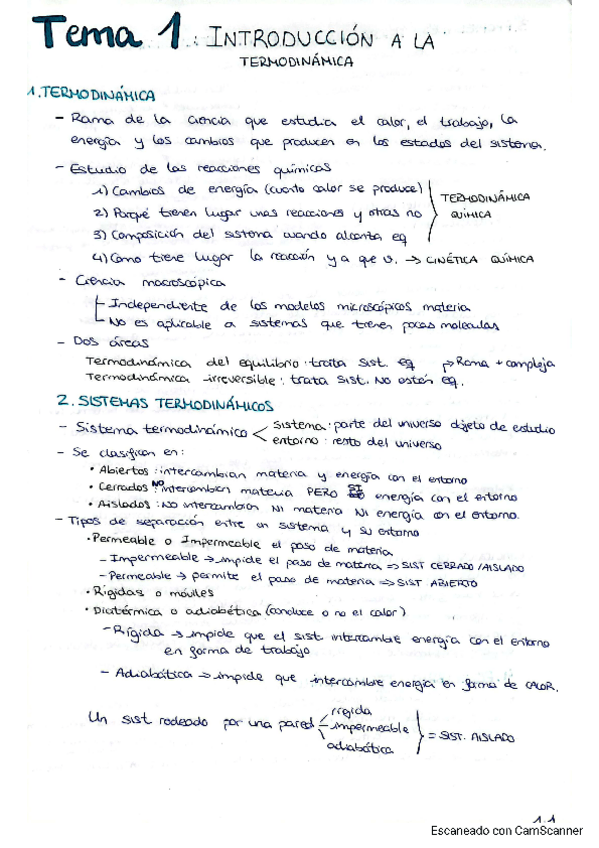 Tema 1: INTRODUCCIÓN A LA
TERMODINÁMICA
1. TERMODINÁMICA
- Rama de la ciencia que estudia el calor, el trabajo, la
energía y los cambios que producen en los estados del sistema.
- Estudio de las reacciones químicas
1) Cambios de energía (cuanto calor se produce)
2) Porqué tienen lugar unas reacciones y otras no
3) Composición del sistema cuando alcanza eq
TERMODINÁMICA
QUÍMICA
4) Como tiene lugar la reacción y a que v. → CINÉTICA QUÍMICA
- Ciencia macroscópica
- Independiente de los modelos microscópicos materia
- No es aplicable a sistemas que tienen pocas moleculas
- Dos áreas
Termodinámica del equilibrio: trata sist. eq → Rama + compleja
Termodinámica irreversible: trata sist. NO están eq.
2. SISTEMAS TERMODINÁMICOS
- Sistema termodinámico < sistema: parte del universo objeto de estudio
entorno: resto del universo
- Se clasifican en:
• Abiertos: intercambian materia y energía con el entorno
• Cerrados: NO intercambian materia PERO SI energía con el entorno
• Aislados: NO intercambian NI materia NI energía con el entorno.
- Tipos de separación entre un sistema y su entorno
• Permeable o Impermeable el paso de materia
- Impermeable → impide el paso de materia => SIST CERRADO/AISLADO
- Permeable → permite el paso de materia => SIST ABIERTO
• Rígidas o móviles
• Diatérmica o adiabática (conduce o no el calor)
- Rígida → impide que el sist intercambie energía con el entorno
en forma de trabajo
- Adiabática → impide que intercambie energia en forma de CALOR.
Un sist rodeado por una pared
rígida
impermeable
adiabática
= SIST. AISLADO
1.1
Escaneado con CamScanner